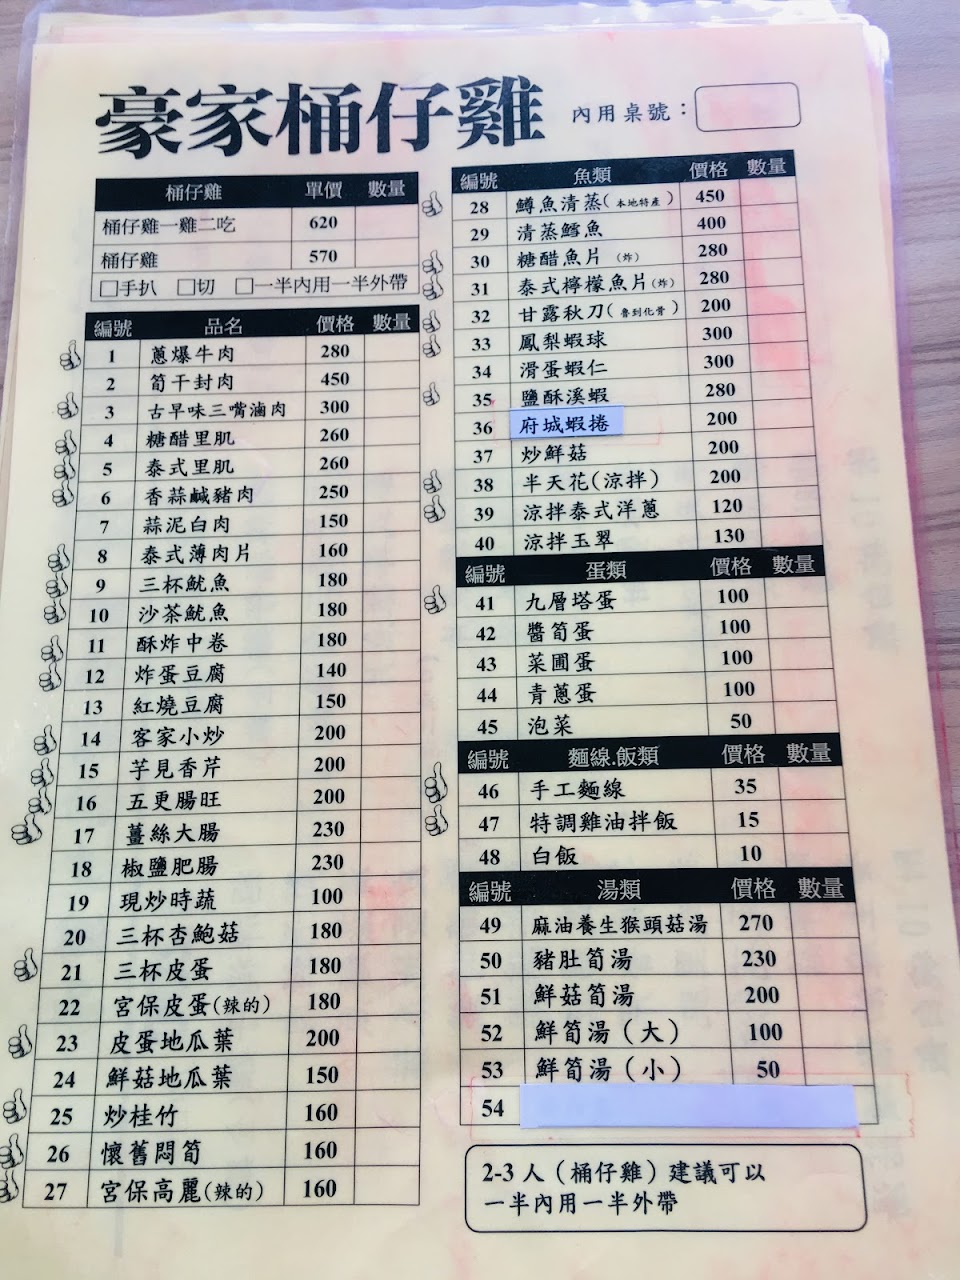 豪家桶仔雞
內用桌號：
桶仔雞 單價 數量
桶仔雞一雞二吃 620
桶仔雞 570
□手扒 □切 □一半內用一半外帶
編號 品名 價格 數量
1 蔥爆牛肉 280
2 筍干封肉 450
3 古早味三嘴滷肉 300
4 糖醋里肌 260
5 泰式里肌 260
6 香蒜鹹豬肉 250
7 蒜泥白肉 150
8 泰式薄肉片 160
9 三杯魷魚 180
10 沙茶魷魚 180
11 酥炸中卷 180
12 炸蛋豆腐 140
13 紅燒豆腐 150
14 客家小炒 200
15 芋見香芹 200
16 五更腸旺 200
17 薑絲大腸 230
18 椒鹽肥腸 230
19 現炒時蔬 100
20 三杯杏鮑菇 180
21 三杯皮蛋 180
22 宮保皮蛋(辣的) 180
23 皮蛋地瓜葉 200
24 鮮菇地瓜葉 150
25 炒桂竹 160
26 懷舊悶筍 160
27 宮保高麗(辣的) 160
編號 魚類 價格 數量
28 鱒魚清蒸(本地特產) 450
29 清蒸鱈魚 400
30 糖醋魚片(炸) 280
31 泰式檸檬魚片(炸) 280
32 甘露秋刀(魯到化骨) 200
33 鳳梨蝦球 300
34 滑蛋蝦仁 300
35 鹽酥溪蝦 280
36 府城蝦捲 200
37 炒鮮菇 200
38 半天花(涼拌) 200
39 涼拌泰式洋蔥 120
40 涼拌玉翠 130
編號 蛋類 價格 數量
41 九層塔蛋 100
42 醬筍蛋 100
43 菜圃蛋 100
44 青蔥蛋 100
45 泡菜 50
編號 麵線.飯類 價格 數量
46 手工麵線 35
47 特調雞油拌飯 15
48 白飯 10
編號 湯類 價格 數量
49 麻油養生猴頭菇湯 270
50 豬肚筍湯 230
51 鮮菇筍湯 200
52 鮮筍湯（大） 100
53 鮮筍湯（小） 50
54
2-3人（桶仔雞）建議可以
一半內用一半外帶